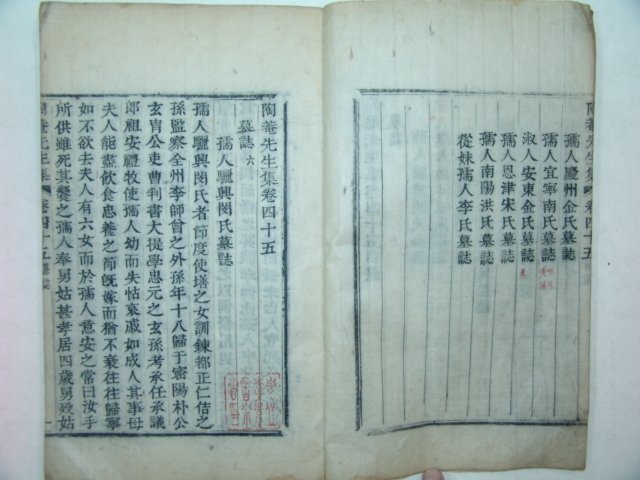 孺人慶州金氏墓誌
孺人宜寧南氏墓誌
淑人安東金氏墓誌
孺人恩津宋氏墓誌
孺人南陽洪氏墓誌
從妹孺人李氏墓誌
陶菴先生集 卷四十五
陶菴先生集卷四十五
墓誌 六
孺人驪興閔氏墓誌
孺人驪興閔氏者節度使墡之女訓鍊都正仁佶之
孫監察全州李師曾之外孫年十八歸于密陽朴公
玄胄公吏曹判書大提學忠元之玄孫考承任承議
郎祖安禮牧使孺人幼而失怙哀戚如成人其事母
夫人能盡飮食忠養之節旣嫁而猶不衰往往歸寧
如不欲去夫人有六女而於孺人意安之常曰汝手
所供雖死其甕之孺人奉舅姑甚孝居四歲舅歿姑
陶菴先生集 卷四十五 墓誌 一